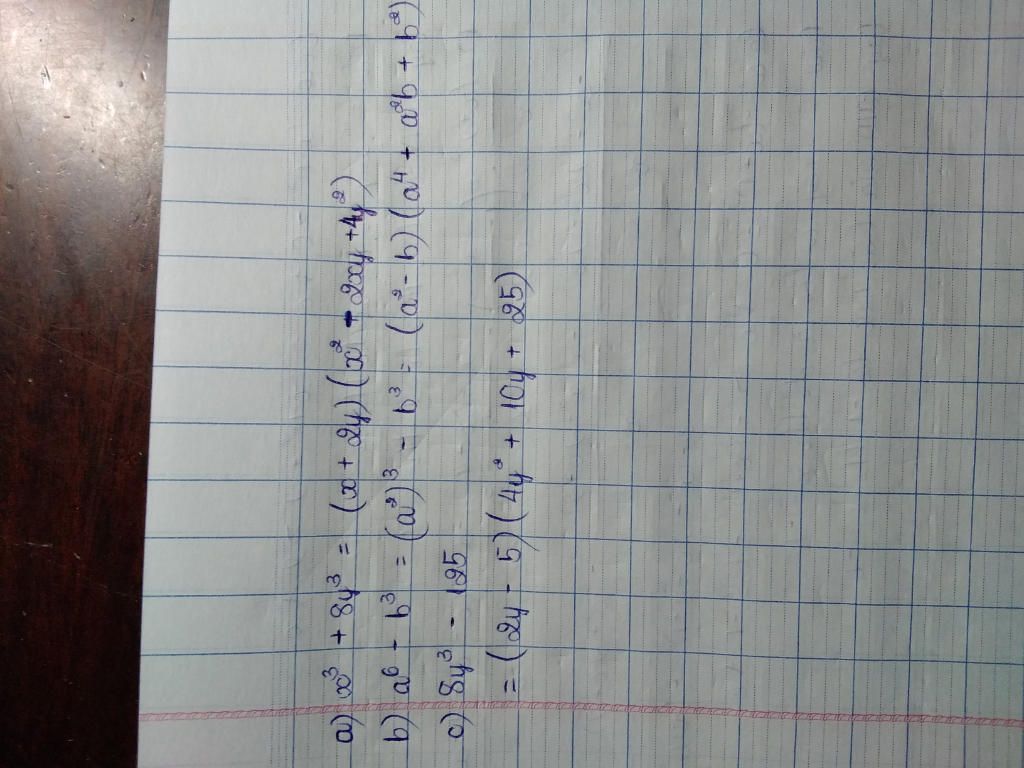 a) x³ + 8y³ = (x + 2y)(x² - 2xy + 4y²)
b) a⁶ - b³ = (a²)³ - b³ = (a² - b)(a⁴ + a²b + b²)
c) 8y³ - 125
= (2y - 5)(4y² + 10y + 25)